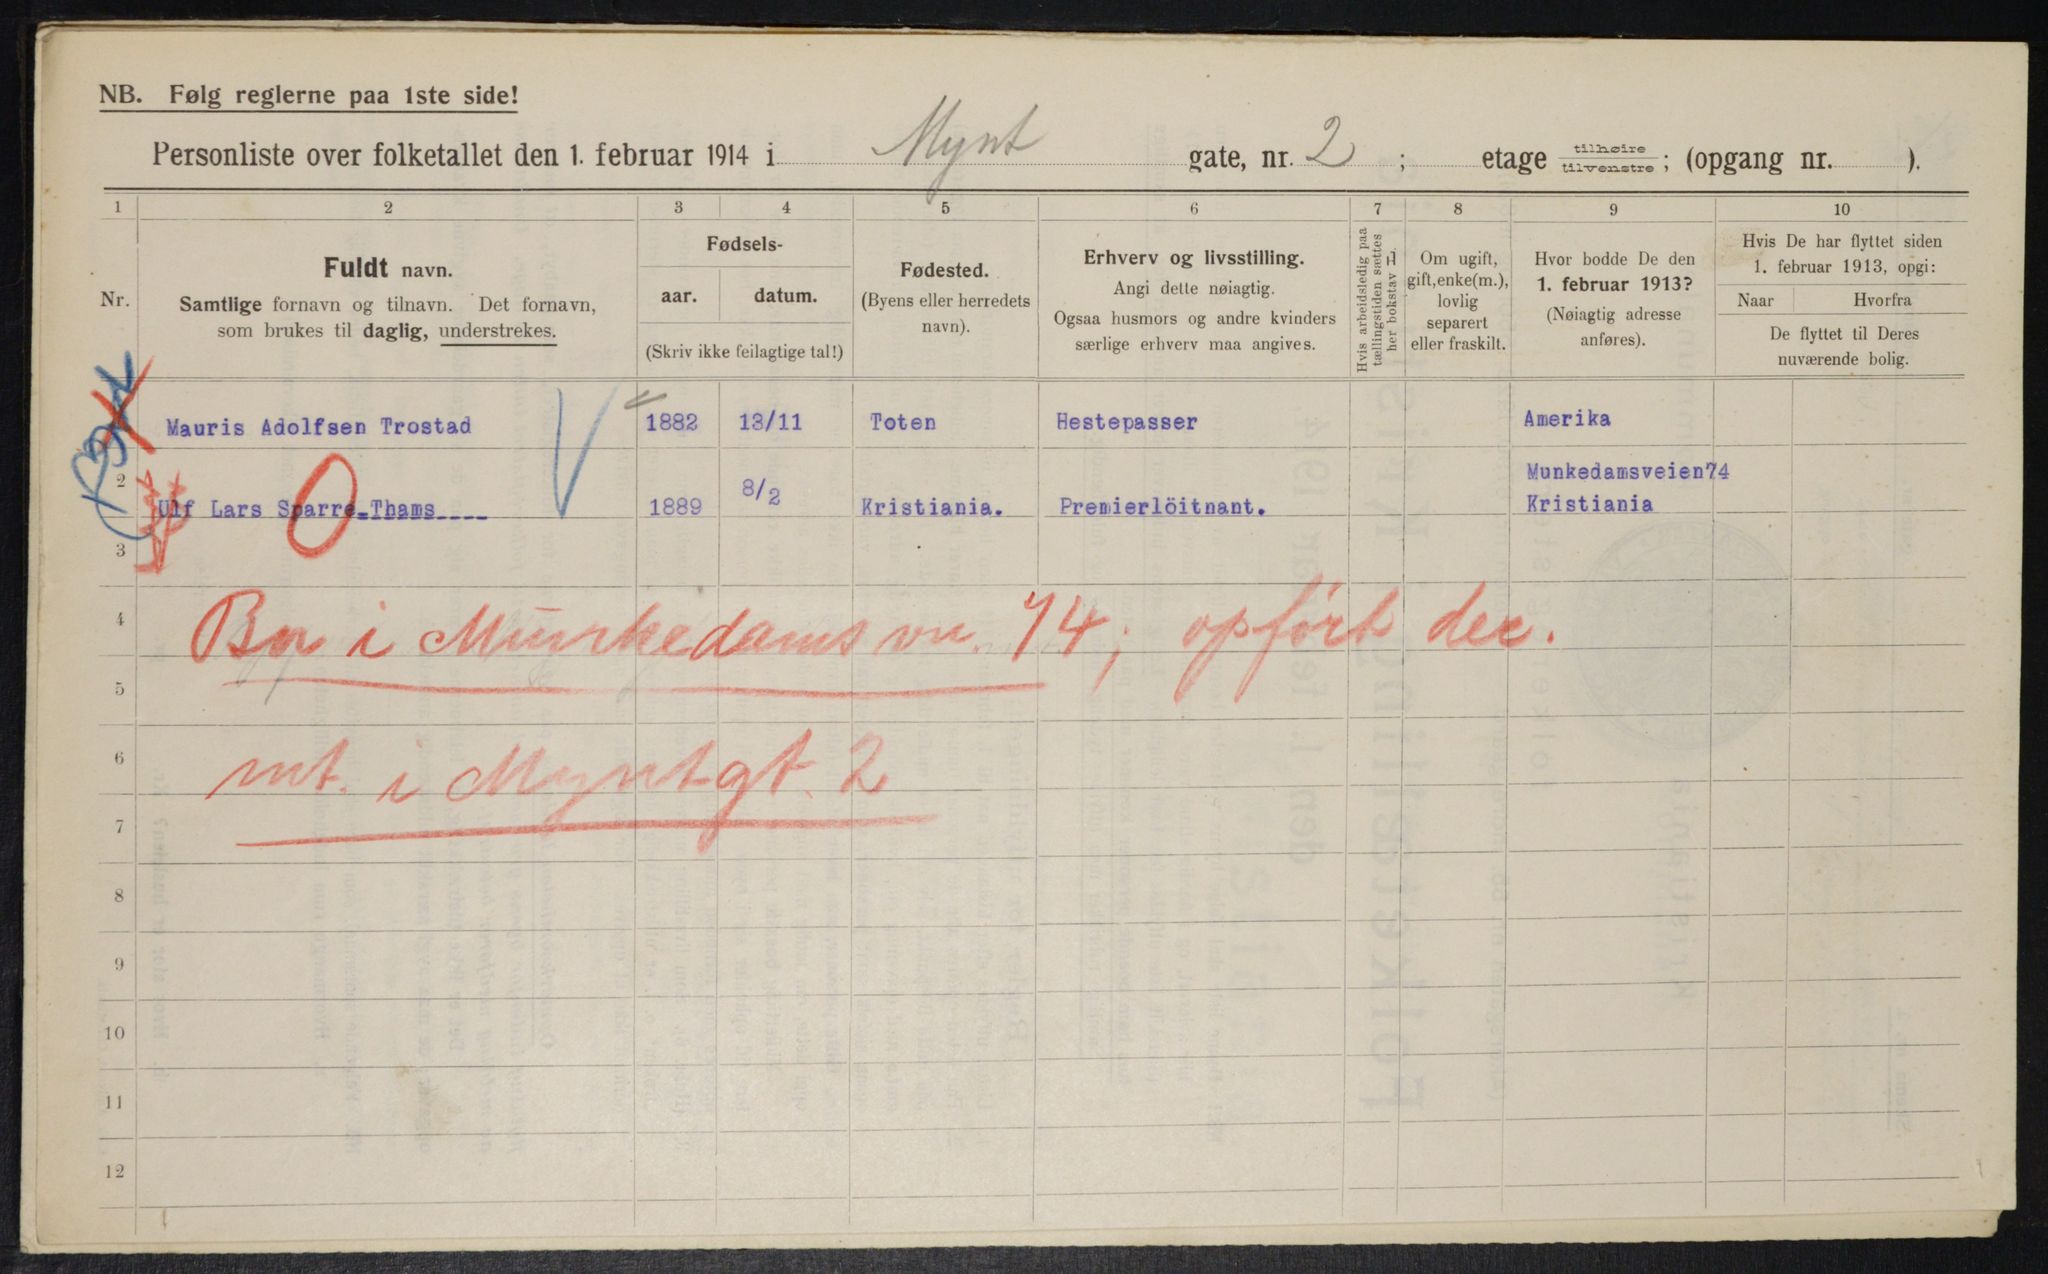 NB. Følg reglerne paa 1ste side!
Personliste over folketallet den 1. februar 1914 i Mynt gate, nr. 2 ; etage tilhøire tilvenstre ; (opgang nr. ).
1 2 3 4 5 6 7 8 9 10
Nr.
Fuldt navn.
Samtlige fornavn og tilnavn. Det fornavn,
som brukes til daglig, understrekes.
Fødsels-
aar. datum.
(Skriv ikke feilagtige tal!)
Fødested.
(Byens eller herredets
navn).
Erhverv og livsstilling.
Angi dette nøiagtig.
Ogsaa husmors og andre kvinders
særlige erhverv maa angives.
Hvis arbeidsledig paa
tællingstiden sættes
her bokstav L.
Om ugift,
gift, enke(m.),
lovlig
separert
eller fraskilt.
Hvor bodde De den
1. februar 1913?
(Nøiagtig adresse
anføres).
Hvis De har flyttet siden
1. februar 1913, opgi:
Naar Hvorfra
De flyttet til Deres
nuværende bolig.
Mauris Adolfsen Trostad 1882 13/11 Toten Hestepasser Amerika
2 Munkedamsveien74
Ulf Lars Sparre-Thams 1889 8/2 Kristiania. Premierlöitnant. Kristiania
3
4 Bor i Munkedamsvn. 74; opført der.
5
6 mt. i Myntgt. 2
7
8
9
10
11
12